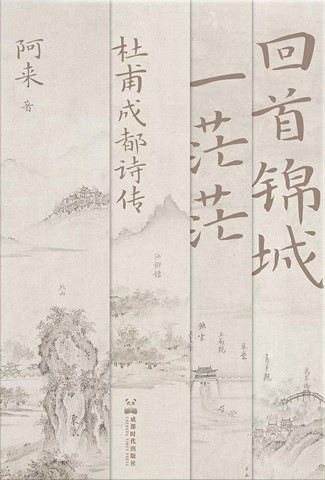 回首锦城
一茫茫
杜甫成都诗传
阿来 著
成都时代出版社
CHENGDU TIMES PRESS